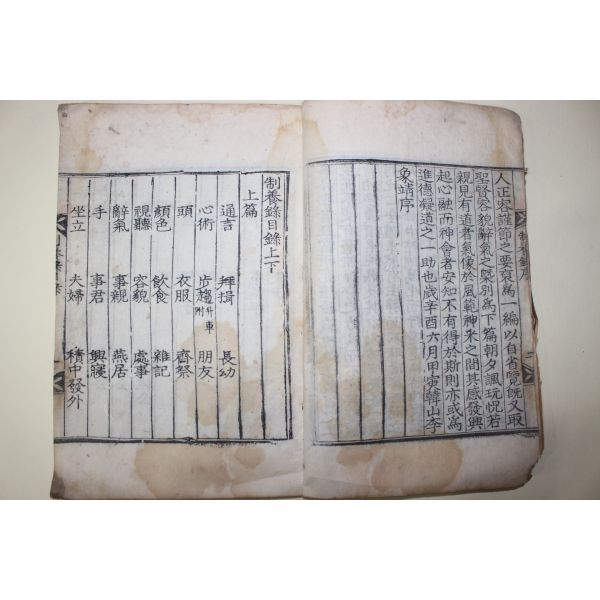 人正容謹節之要裒爲一編以自省覽旣又取
聖賢容貌辭氣之槩別爲下篇朝夕諷玩怳若
親見有道者氣像於風範神采之間其感發興
起心融而神會者安知不有得於斯則亦或爲
進德凝道之一助也歲辛酉六月甲寅韓山李
象靖序
制養錄序
二
制養錄目錄上下
上篇
通言 拜揖 長幼
心術 步趨附升車 朋友
頭 衣服 齊祭
顏色 飮食 雜記
視聽 容貌 處事
辭氣 事親 燕居
手 事君 興寢
坐立 夫婦 積中發外